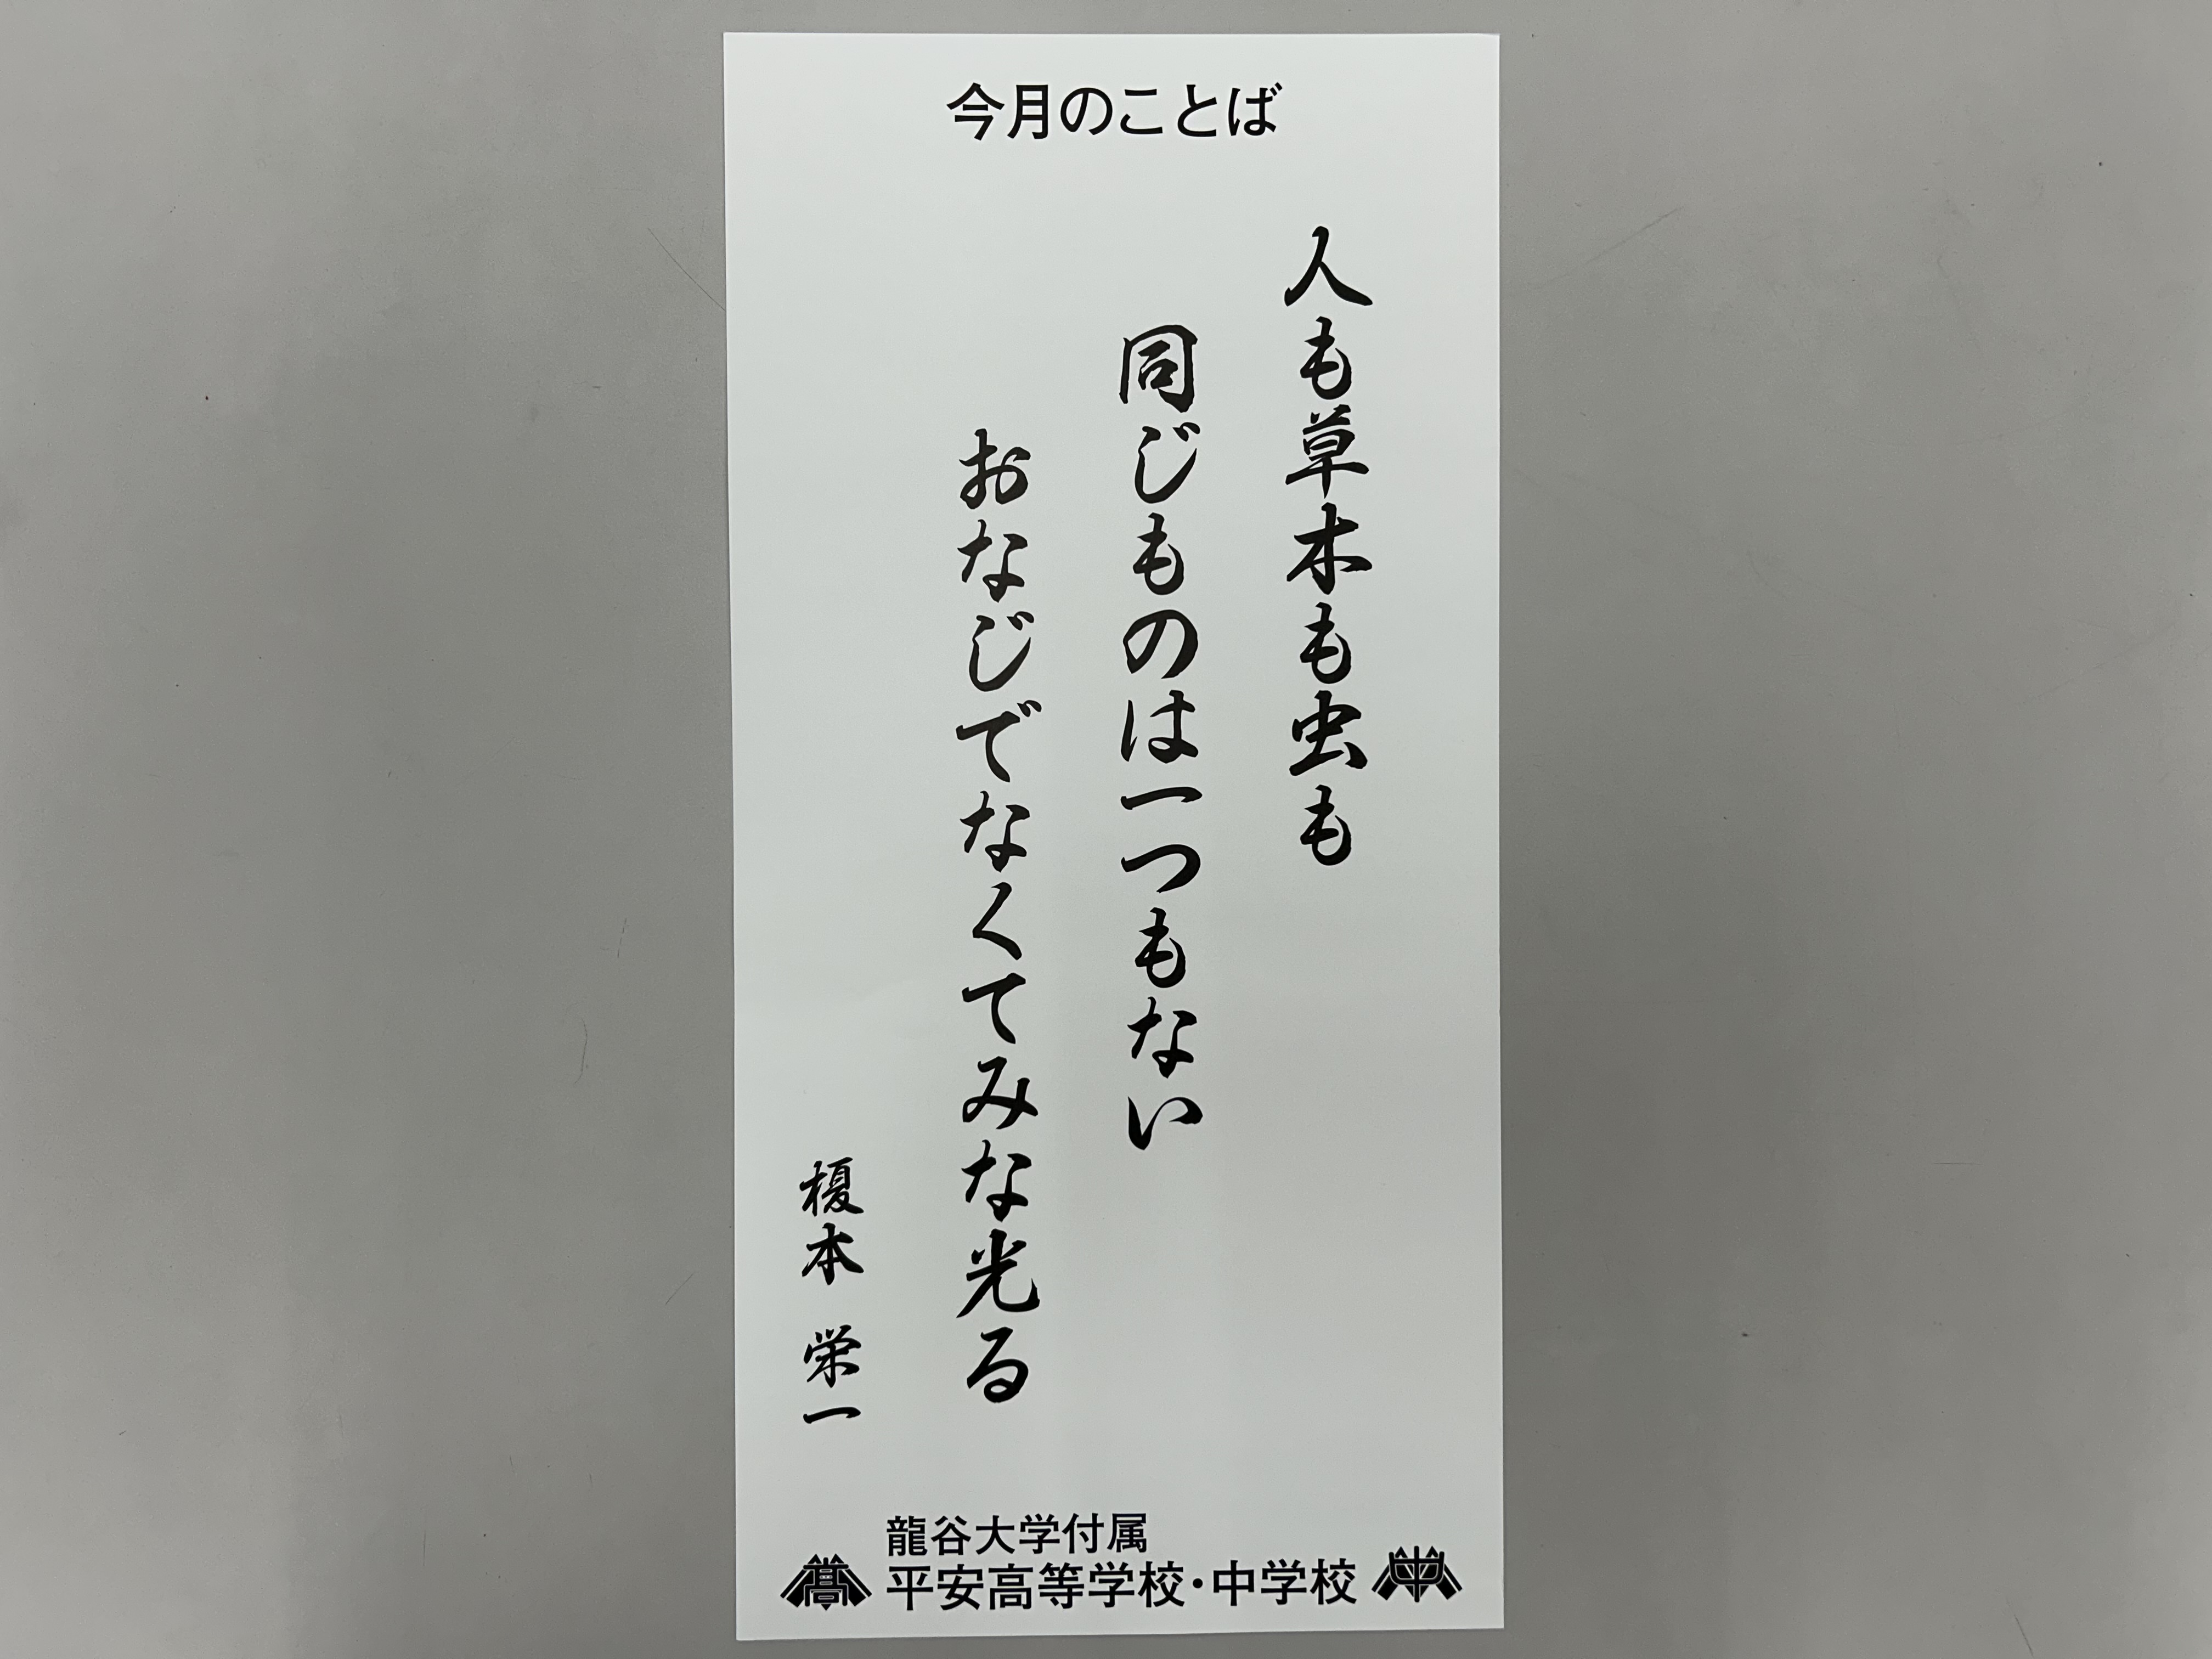 今月のことば
人も草木も虫も
同じものは一つもない
おなじでなくてみな光る
榎本 栄一
龍谷大学付属
平安高等学校・中学校
高
中